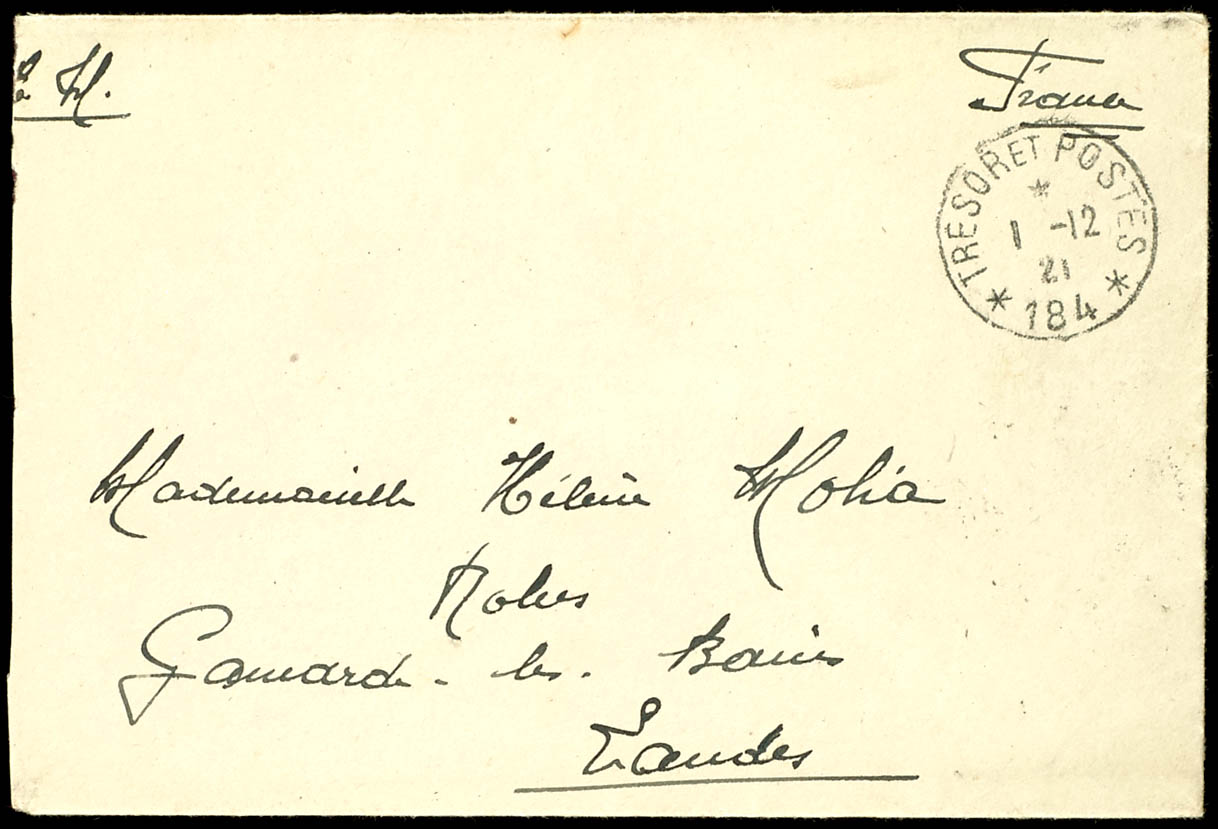 M.
France
TRESOR ET POSTES
1 -12
21
* 184 *
Mademoiselle Hélène Molia
Gamarde-les-Bains
Landes